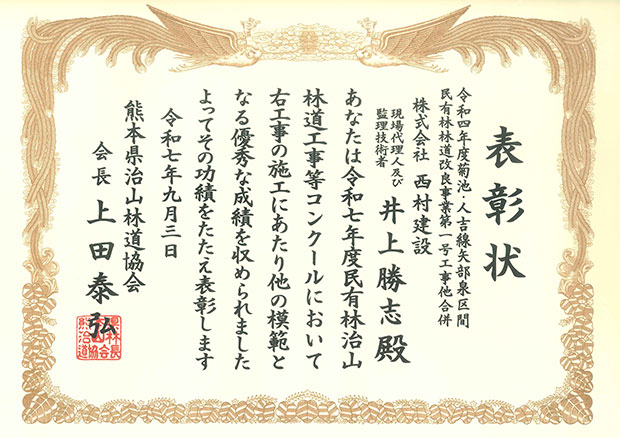 表彰状
令和四年度菊池・人吉線矢部泉区間
民有林林道改良事業第一号工事他合併
株式会社 西村建設
現場代理人及び
監理技術者
井上勝志殿
あなたは令和七年度民有林治山
林道工事等コンクールにおいて
右工事の施工にあたり他の模範と
なる優秀な成績を収められました
よってその功績をたたえ表彰します
令和七年九月三日
熊本県治山林道協会
会長 上田泰弘